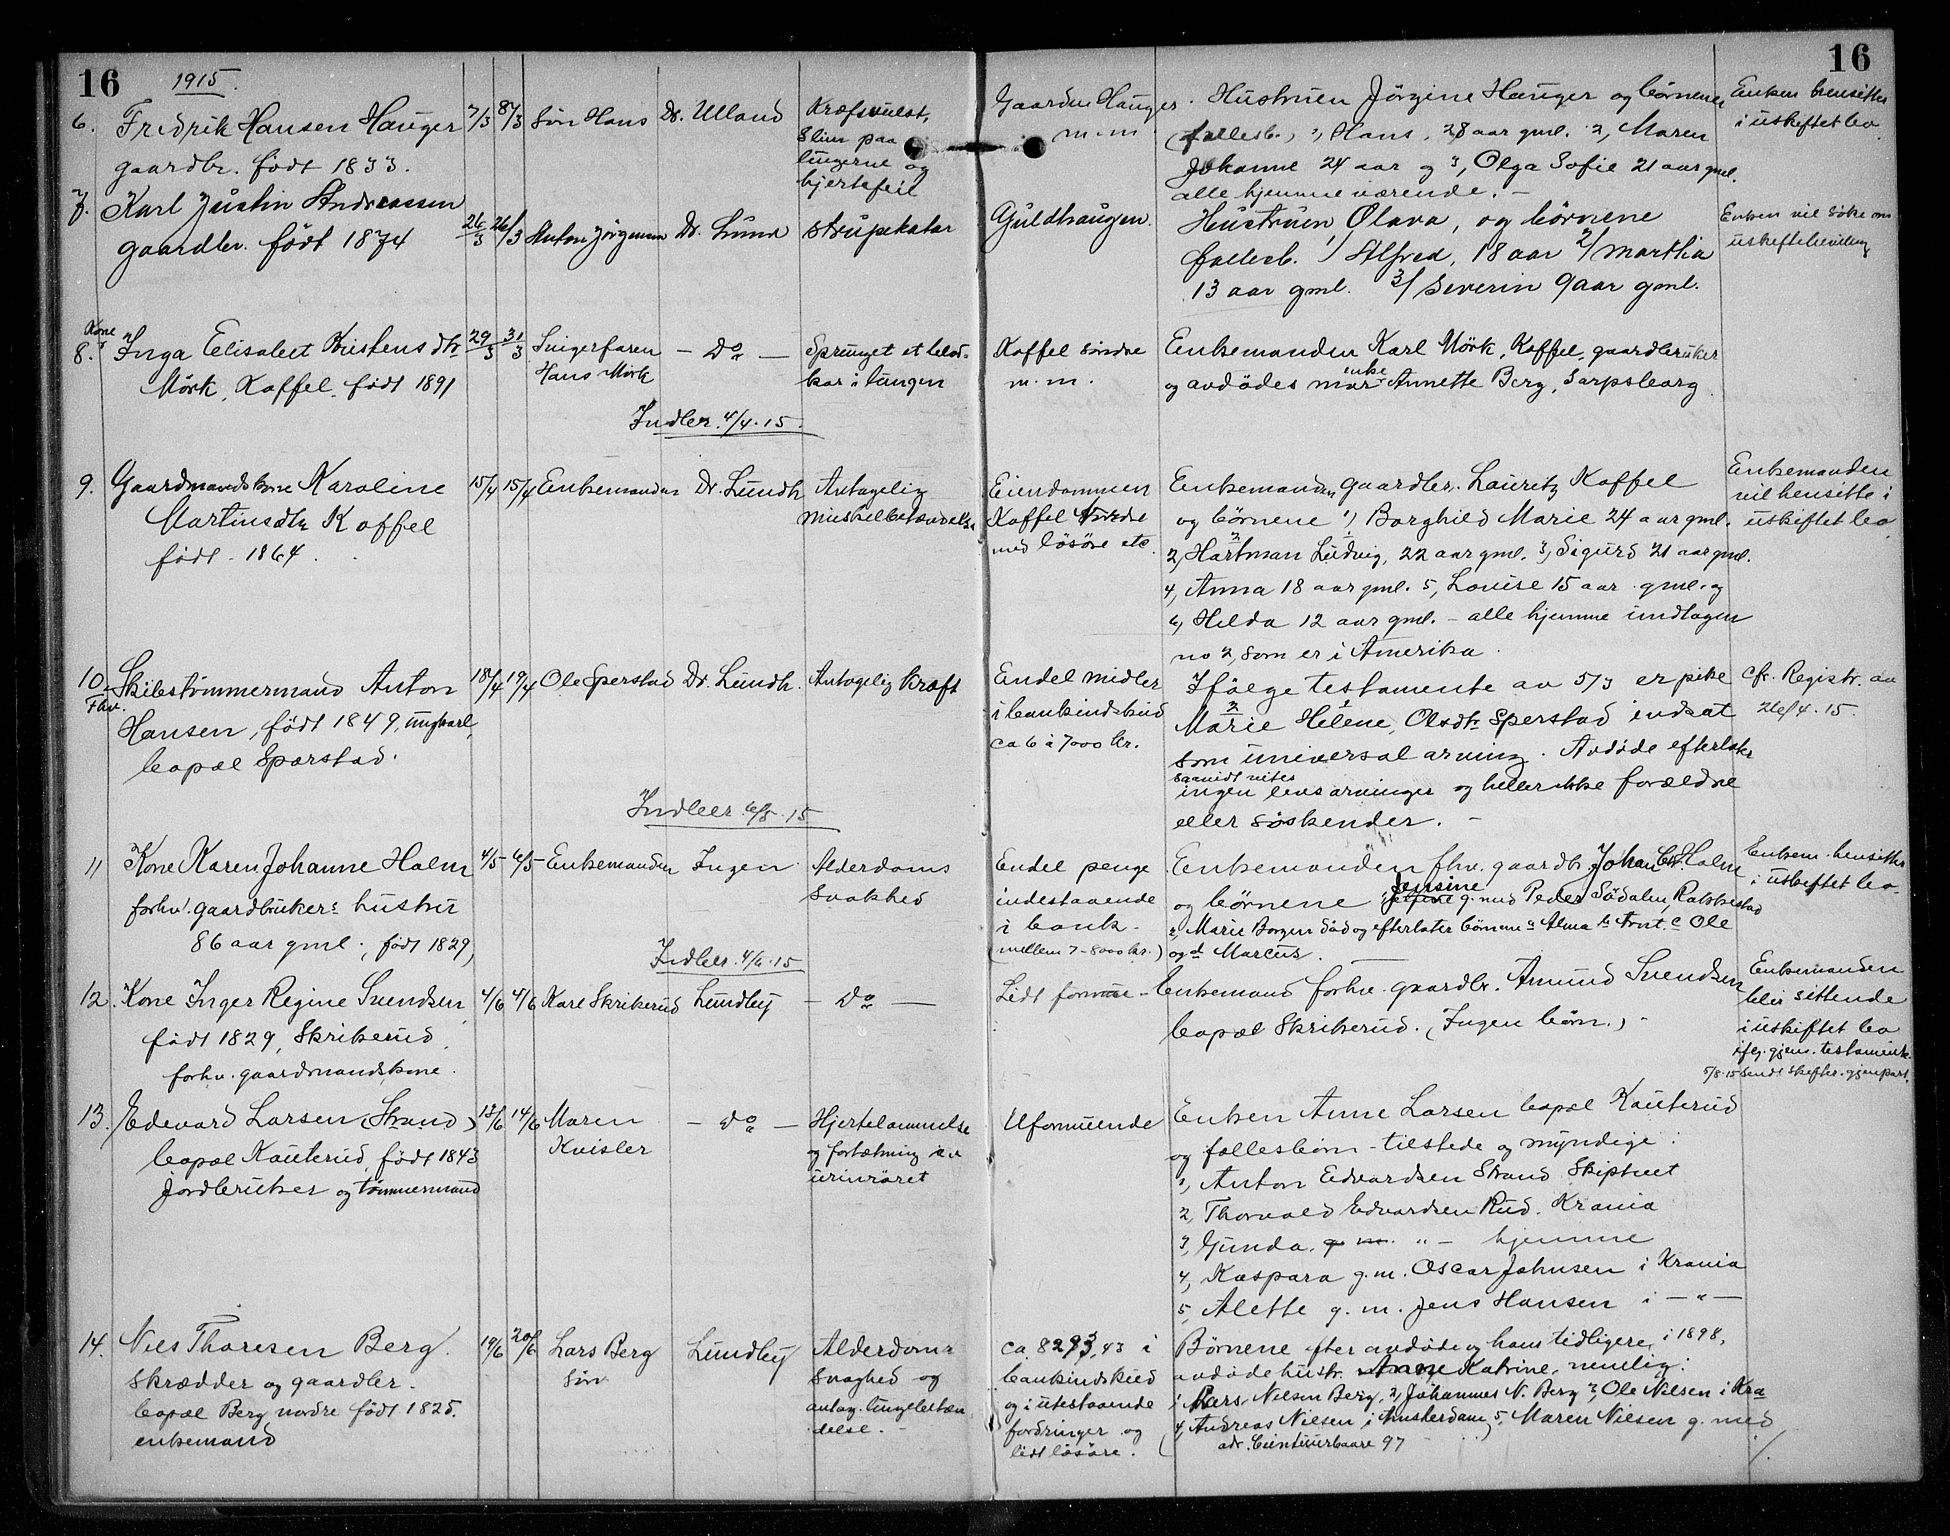 16 1915. 16
6. Fredrik Hansen Hauger 7/3 8/3 Søn Hans Dr. Ulland Kræfsvulst,
gaardbr. født 1833. Slim paa
lungerne og
hjertefeil
Gaarden Hauger
m.m.
Hustruen Jörgine Hauger og börnene
(fællesb.) 1, Hans, 28 aar gml. 2, Maren
Johanne 24 aar og 3, Olga Sofie 21 aar gml.
alle hjemmeværende. –
Enken hensitter
i uskiftet bo
7. Karl Justin Andreassen
gaardbr. født 1874 26/3 26/3 Anton Jörgensen Dr. Lund Strupekatar
Guldhaugen.
Hustruen Olava, og börnene
fællesb. 1/ Alfred, 18 aar 2/ Martha
13 aar gml. 3/ Severin 9 aar gml.
Enken vil söke om
uskiftebevilling
Kone
8. Inga Elisabet Kristensdtr 29/3 31/3 Svigerfaren – Do – Sprunget et blod-
Mörk, Koffel, født 1891 Hans Mörk kar i lungen
Koffel söndre
m.m.
Enkemanden Karl Mörk, Koffel, gaardbruker
og avdödes mor enke Annette Berg, Sarpsborg
Indber. 4/4.15.
9. Gaardmandskone Karoline 15/4 15/4 Enkemanden Dr. Lundh Antagelig
Martinsdtr Koffel muskelbetændelse
født 1864.
Eiendommen
Koffel
med lösöre etc.
Enkemanden gaardbr. Lauretz Koffel
og börnene 1) Borghild Marie 24 aar gml.
2, Hartman Ludvig, 22 aar gml. 3, Sigurd 21 aar gml.
4, Anna 18 aar gml. 5, Louise 15 aar gml. og
6, Hilda 12 aar gml. – alle hjemme undtagen
no 2, som er i Amerika.
Enkemanden
vil hensitte i
uskiftet bo
10. Skibstømmermand Anton 18/4 19/4 Ole Sperstad Dr. Lundh. Antagelig kræft
Fhv.
Hansen, født 1849, ungkarl,
bopæl Sparstad.
Endel midler
i bankindskud
ca 6 à 7000 kr.
Ifölge testamente av 5/3 er pike
Marie Helene, Olsdtr Sperstad indsat
som universalarving. Avdöde efterlater
saavidt vites
ingen livsarvinger og heller ikke forældre
eller söskender. –
cfr. Registr. av
26/4.15.
Indber 6/5.15
11 Kone Karen Johanne Holm 4/5 6/5 Enkemanden Ingen Alderdoms
forhv. gaardbrukers hustru svakhed
86 aar gml., født 1829,
Endel penge
indestaaende
i bank.
(mellem 7–8000 kr.)
Enkemanden fhv. gaardbr. Johan Holm
og börnene 1, Jensine g. med Peder Södalen, Rakkestad
2, Marie Borgen död og efterlater börnene a Alma b Arnt. c Ole
og d Marcus.
Enkem. hensitter
i uskiftet bo.
Indber. 4/6.15
12. Kone Inger Regine Svendsen, 4/6 4/6 Karl Skrikerud Lundby – Do –
født 1829, Skrikerud,
forhv. gaardmandskone.
Lidt formue –
Enkemand forhv. gaardbr. Amund Svendsen
bopæl Skrikerud. (Ingen börn.) –
Enkemanden
blir sittende
i uskiftet bo
ifg. gjens. testamente.
5/8.15 sendt skifter. gjenpart.
13. Edevard Larsen (Strand) 13/6 14/6 Maren – Do – Hjertelammelse
bopæl Kauterud, født 1843 Kvisler og fortætning i
Jordbruker og tømmermand urinröret
Uformuende
Enken Anne Larsen bopæl Kauterud
og fællesbörn – tilstede og myndige:
1, Anton Edvardsen Strand Skiptvet
2, Thorvald Edvardsen Rud. Krania
3, Gunda. g. m. „ – hjemme
4, Kaspara g. m. Oscar Johnsen i Krania
5, Alette g. m. Jens Hansen i – „ –
14. Niels Thoresen Berg. 19/6 20/6 Lars Berg Lundby Alderdoms
skrædder og gaardbr. sön svaghed og
bopæl Berg nordre født 1825. antag. lungebetæn
enkemand delse. –
ca. 8293,43 i
bankindskud
og i utestaaende
fordringer og
lidt lösöre.
Börnene efter avdöde og hans tidligere, i 1898,
avdöde hustr. Anne Katrine, nemlig:
1, Lars Nilsen Berg, 2, Johannes N. Berg 3, Ole Nilsen i Kra
4, Andreas Nilsen, i Amsterdam, 5, Maren Nilsen g. med
(adr. Cintuurbaare 97 )
/.